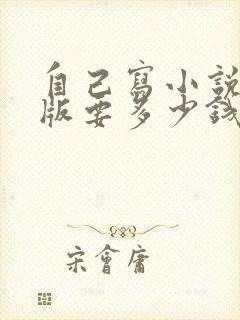 自己寫小說
版要多少錢
宋會庸